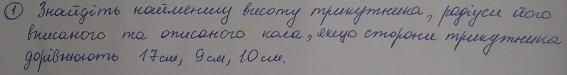 ① Знайдіть найменшу висоту трикутника, радіуси його
вписаного та описаного кола, якщо сторони трикутника
дорівнюють 17см, 9см, 10см.